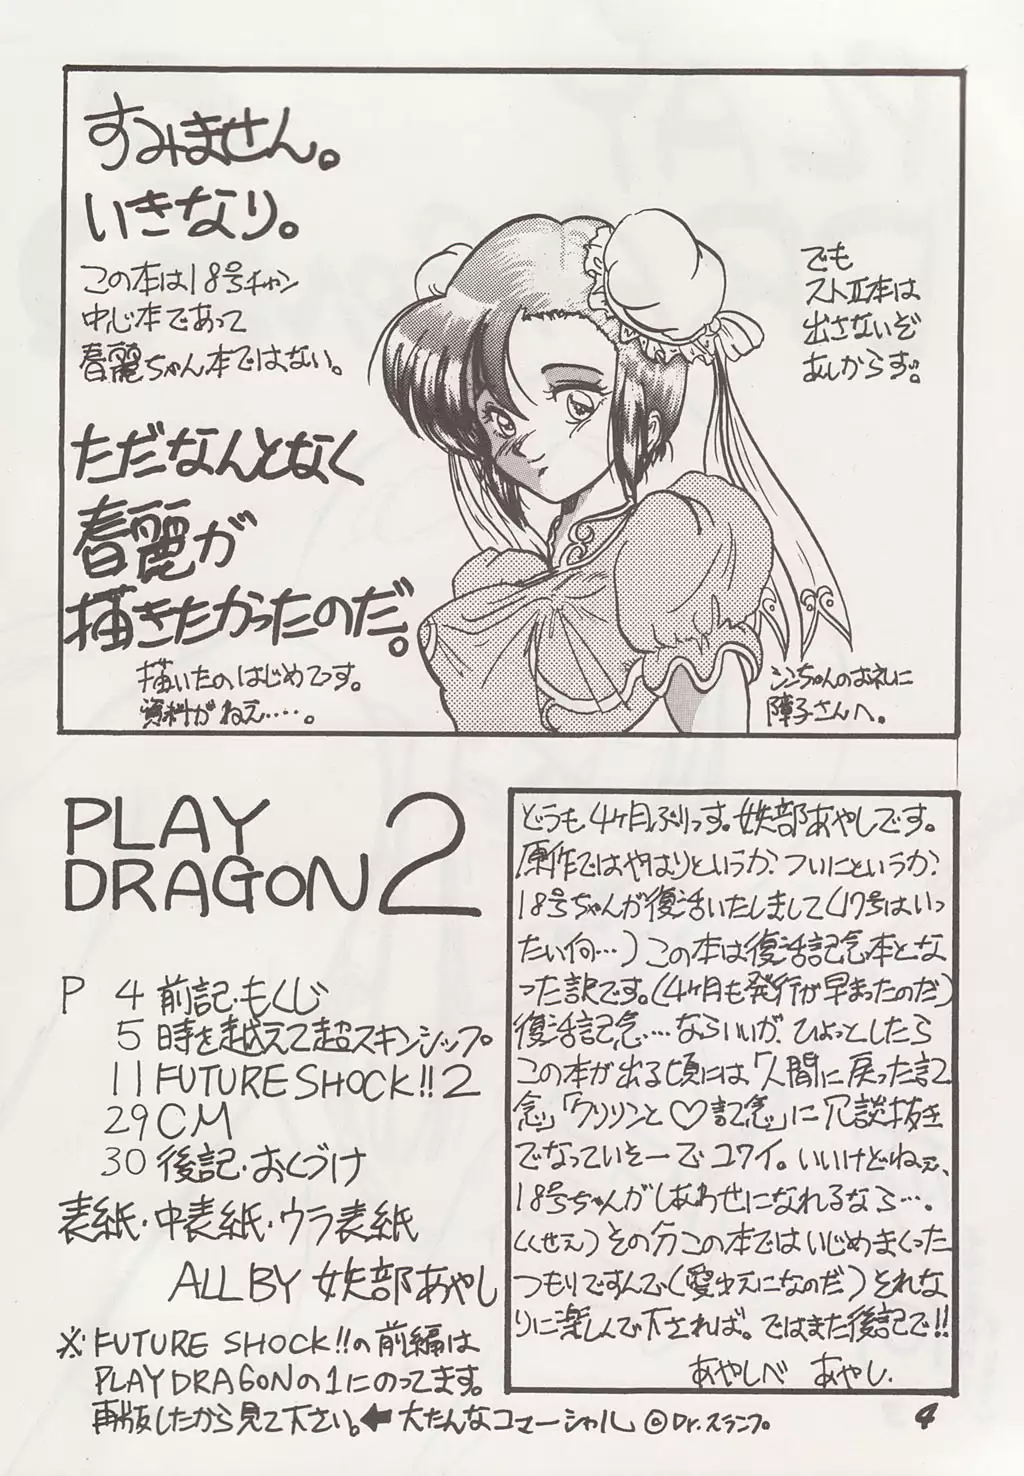 すみません。
いきなり。
この本は18号チャン
中心本であって
春麗ちゃん本ではない。
ただなんとなく
春麗が
描きたかったのだ。
描いたのはじめてっす。
資料がねえ‥‥。
でも
ストⅡ本は
出さないぞ
あしからず。
シンちゃんのお礼に
陣子さんへ。
PLAY
DRAGON 2
P 4 前記・もくじ
5 時を越えて超スキンシップ。
11 FUTURE SHOCK!! 2
29 CM
30 後記・おくづけ
表紙・中表紙・ウラ表紙
ALL BY 妖部あやし
※FUTURE SHOCK!!の前編は
PLAY DRAGONの1にのってます。
再版したから見て下さい。⬅大たんなコマーシャル ©Dr.スランプ。
どうも4ヶ月ぶりっす。妖部あやしです。
原作ではやはりというか?ついにというか?
18号ちゃんが復活いたしまして(17号はいっ
たい何…)この本は復活記念本とな
った訳です。(4ヶ月も発行が早まったのだ)
復活記念…ならいいが、ひょっとしたら
この本が出る頃には「人間に戻った記
念」「クリリンと♡記念」に冗談抜き
でなっていそーでコワイ。いいけどねぇ、
18号ちゃんがしあわせになれるなら…。
(くせえ)その分この本ではいじめまくった
つもりですんで(愛ゆえになのだ)それな
りに楽しんで下されば。ではまた後記で!!
あやしべ あやし.
4